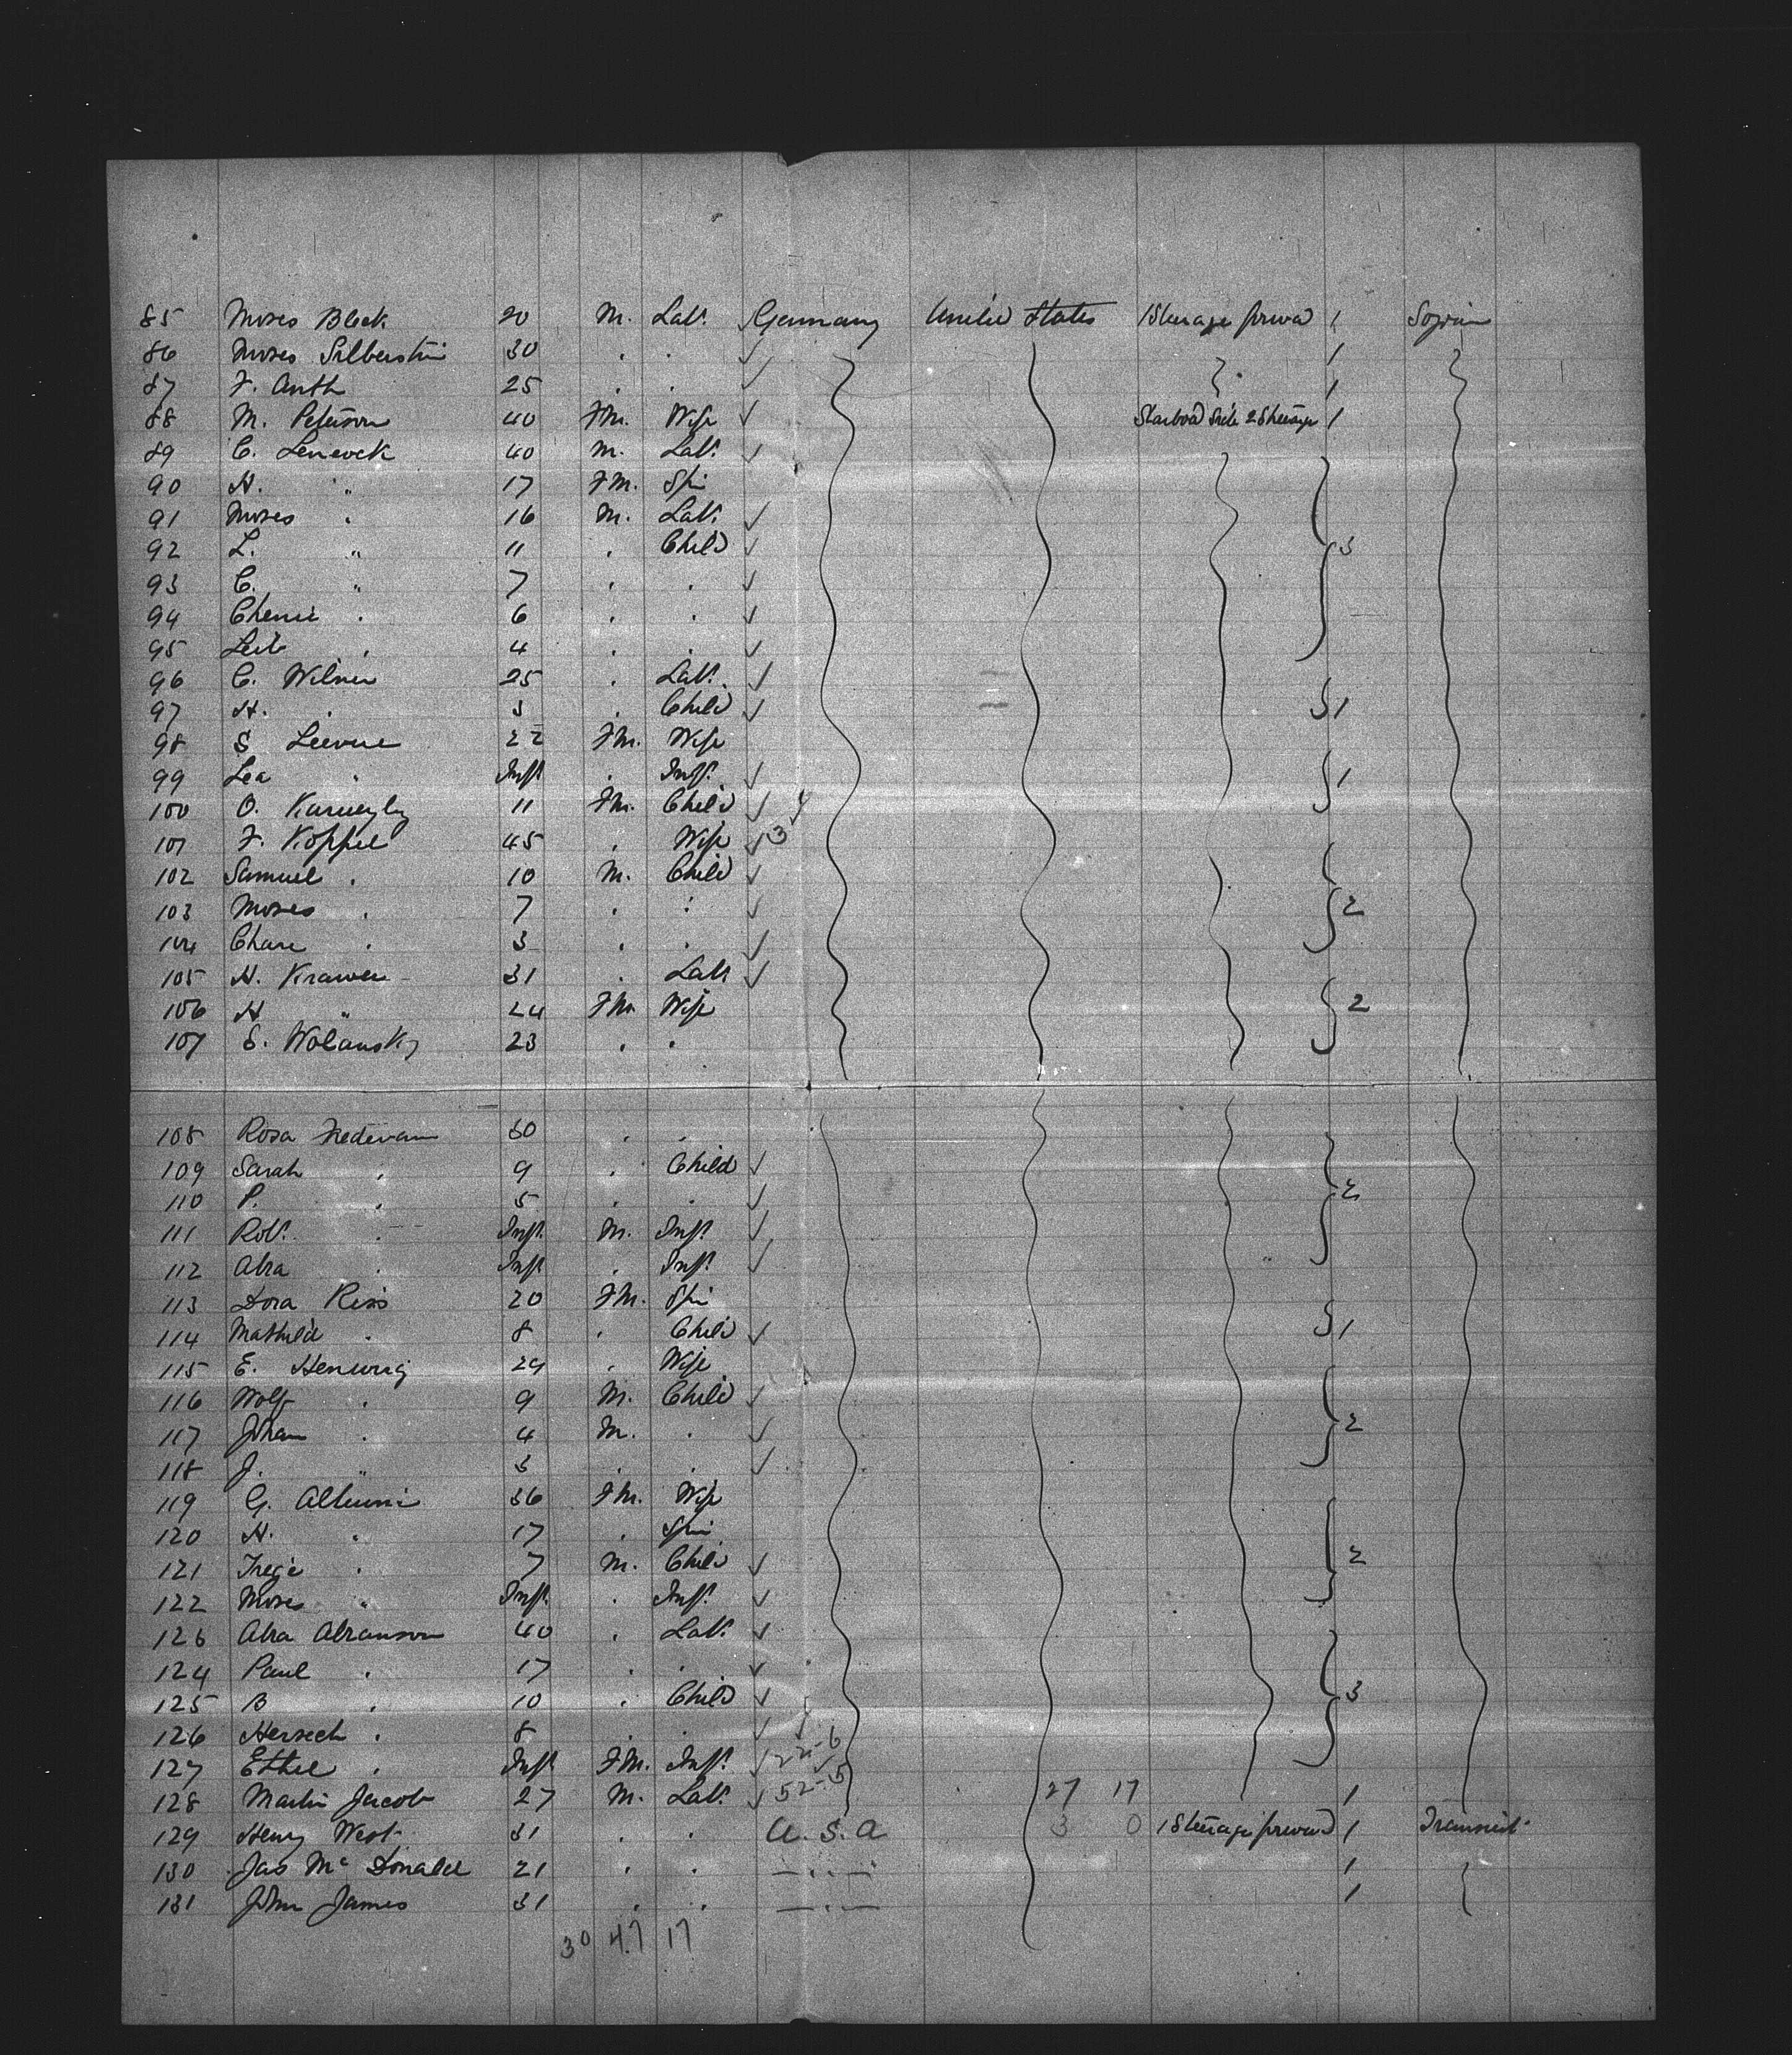 85 Moses Block 20 M. Lab. Germany United States 1 Steerage forwd 1 Sojourn
86 Moses Silberstein 30 . . 1
87 F. Anth 25 . . 1
88 M. Peterson 40 Fm. Wife Starboard Side 2 Steerage 1
89 C. Lenevck 40 M. Lab.
90 H. " 17 Fm. Spi
91 Moses " 16 M. Lab.
92 L. " 11 . Child 3
93 C. " 7 . .
94 Chenie . 6 . .
95 Leib . 4 . .
96 C. Wilner 25 . Lab.
97 H. . 3 . Child 1
98 S Leevne 22 Fm. Wife
99 Lea " Inft . Inft. 1
100 O. 11 Fm. Child 4
101 F. Koppel 45 . Wife 3
102 Samuel . 10 M. Child
103 Moses . 7 . . 2
104 Chane . 3 . .
105 H. Krawer 31 . Lab
106 H " 24 Fm Wife 2
107 S. Wolansky 23 . .
108 Rosa 30 . .
109 Sarah . 9 . Child
110 P. . 5 . . 2
111 Rob. . Inft. M. Inft.
112 Abra . Inft . Inft.
113 Dora Riss 20 Fm. Spi
114 Mathild . 8 . Child 1
115 E. Henwig 29 . Wife
116 Wolf . 9 M. Child
117 Johan . 4 M. . 2
118 J. " 3 . .
119 G. 36 Fm. Wife
120 H. " 17 . Spi
121 . 7 M. Child 2
122 Moses " Inft. . Inft.
123 Abra Abranson 40 . Lab.
124 Paul . 17 . .
125 B . 10 . Child 3
126 Hersech . 8 . .
127 Ethel . Inft Fm. Inft. 22-6
128 Martin Jacob 27 M. Lab. 52-5 27 17 1
129 Henry West 31 . . U.S.A 3 0 1 Steerage forward 1 Transit
130 Jas McDonald 21 . . —..— 1
131 John James 31 . . —..— 1
30 47 17